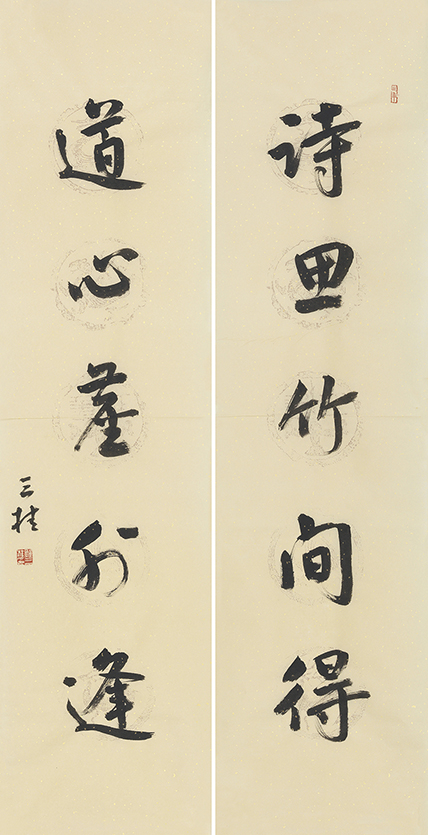 诗思竹间得
道心塵外逢
三桂